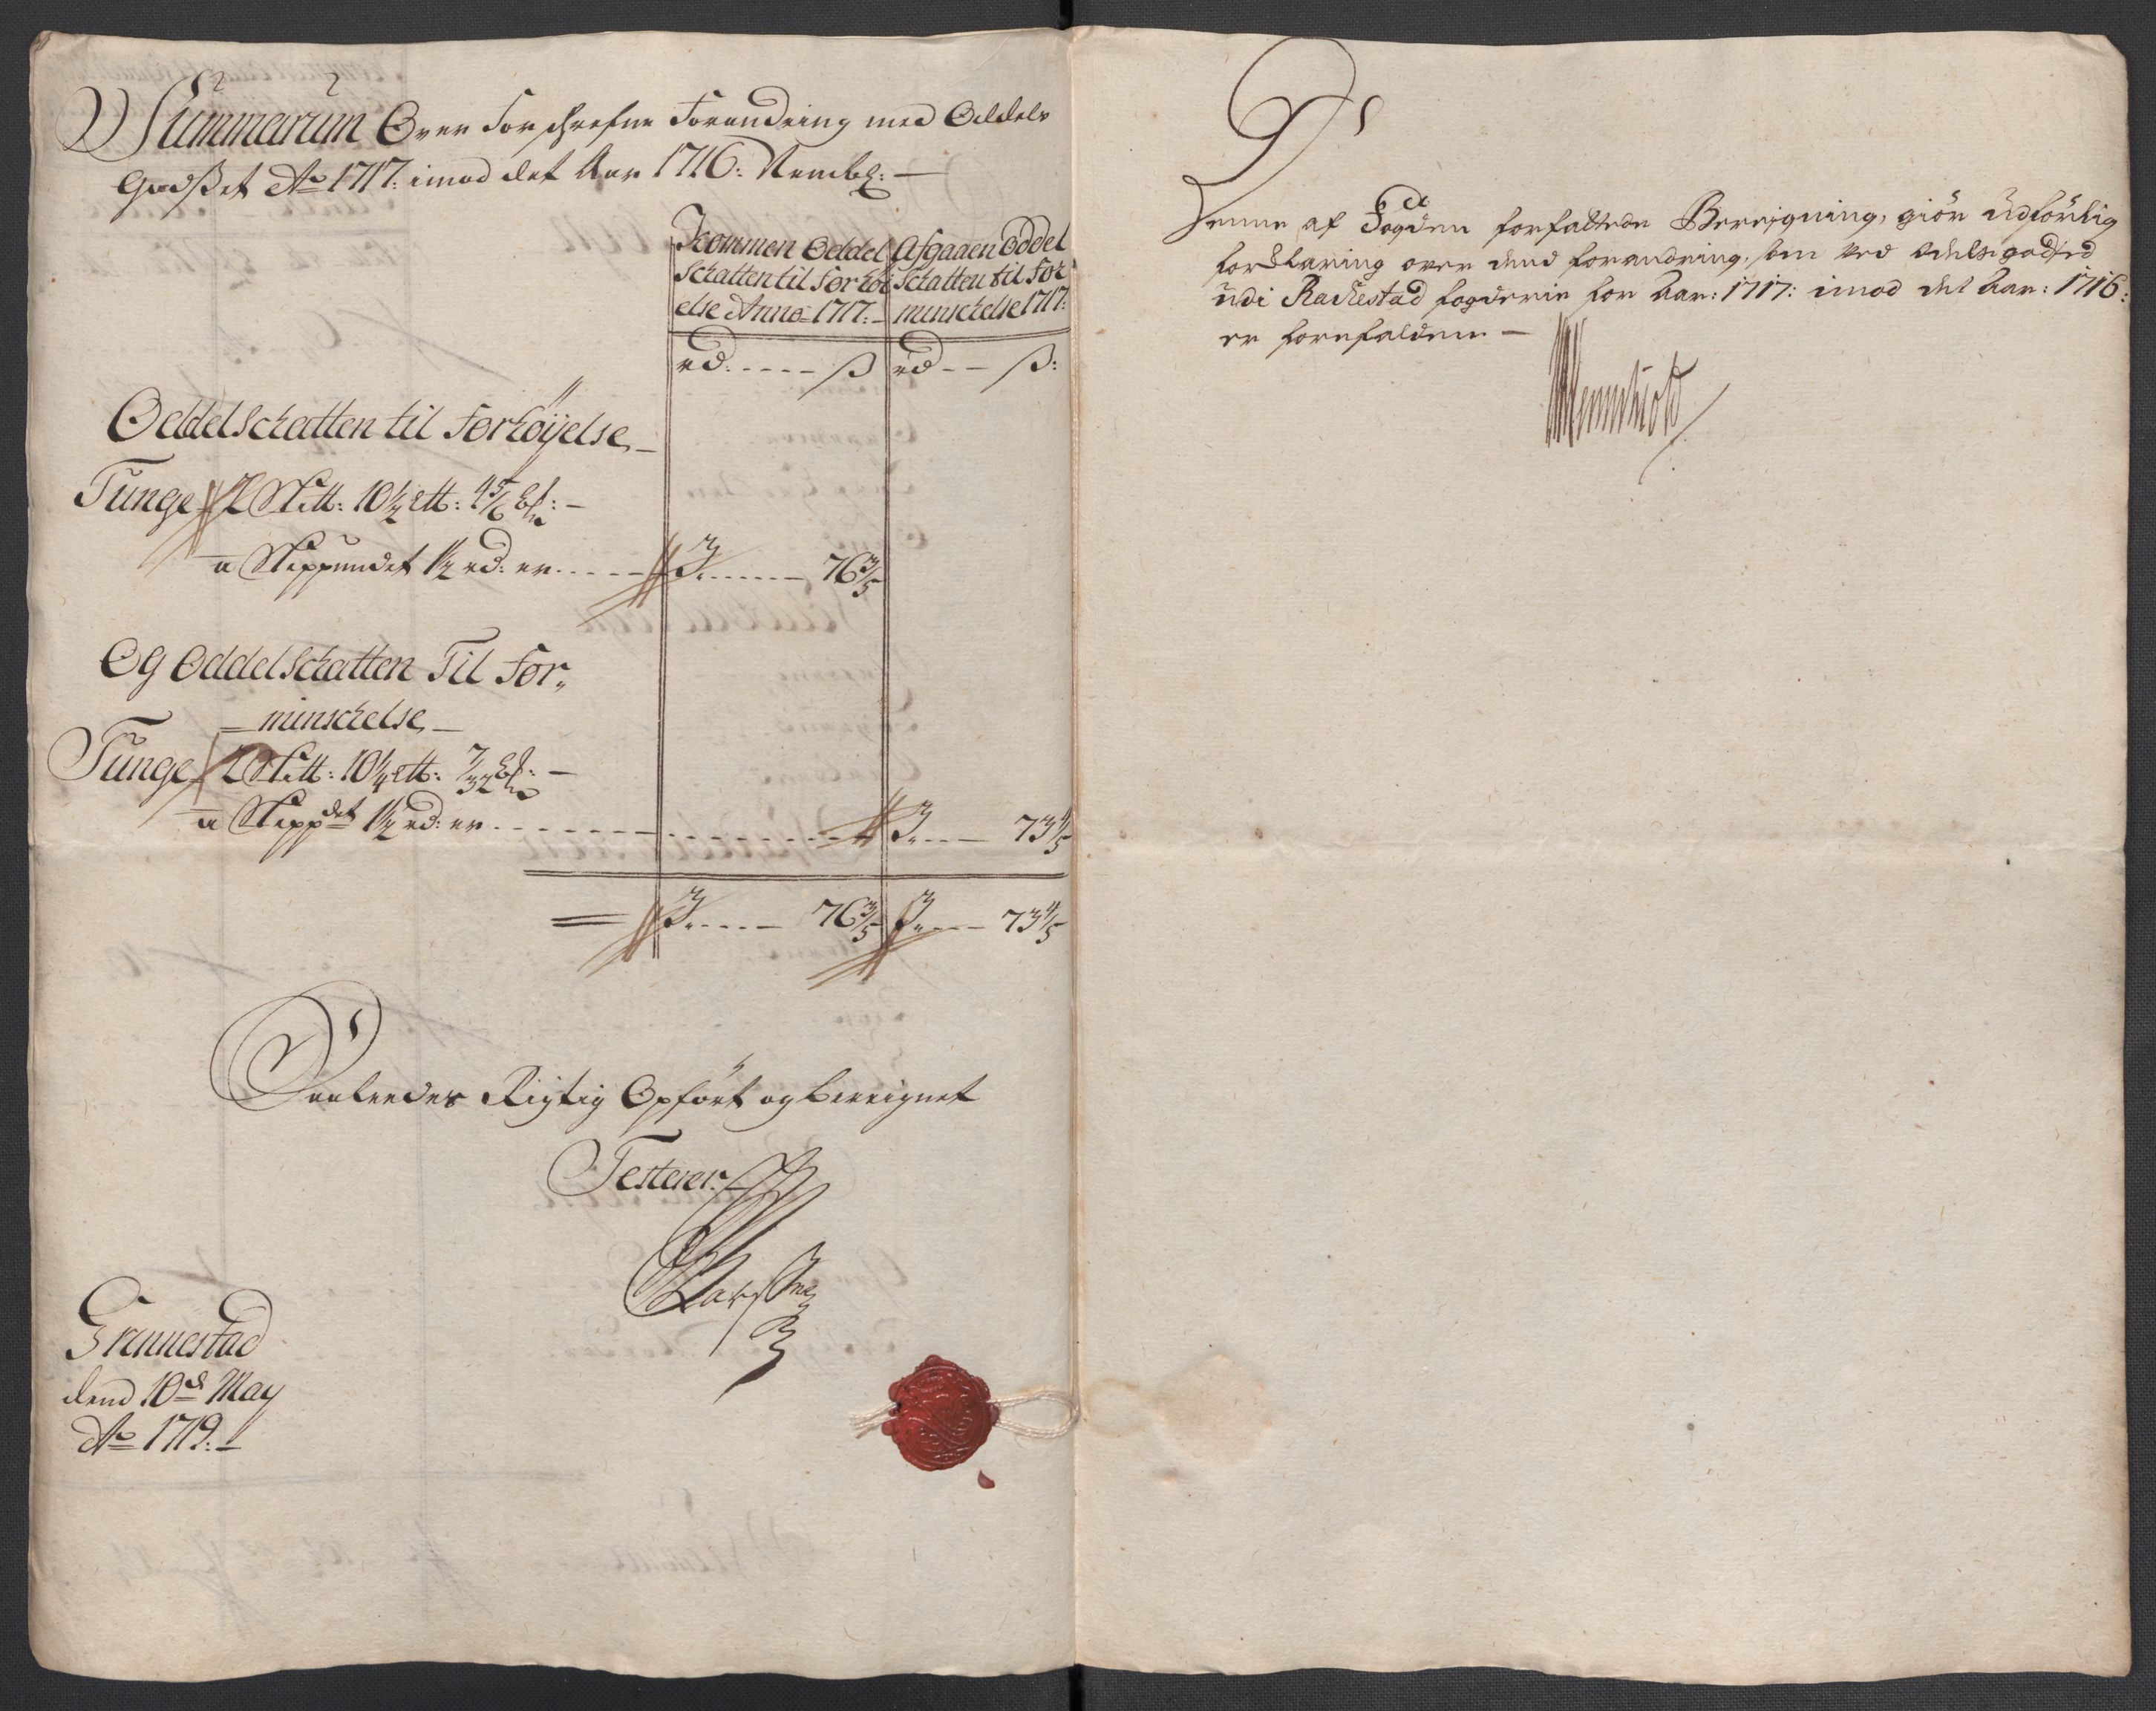 Summarum Over Forschrefne Forandring med Oddels
Godset Ao 1717: imod det Aar 1716: Nembl: —
Jcommen Oddel
schatten til Forhöi
else Anno 1717: -
Afgaaen Oddel
Schatten til For
minschelse 1717:
rd: - - - - - ß
rd - - ß:
Oddelschatten til Forhöyelse —
Tunge 2 Skltt: 10½ ltt: 4 5/6
a Skippundet 1½ rd: er - - - - - 3 - - - - - 76 3/5
Og Oddelschatten Til For„
— minschelse —
Tunge 2 Skltt: 10¼ ltt: 7/32
a Skippdet 1½ rd: er - - - - - - - - - - 3 - - - 73 4/5
= 3 - - - - - 76 3/5 3 - - - 73 4/5
Saaleedes Rigtig Opfört og bereignet
Testerer
Grinnestad
dend 10de May
Ao 1719: -
Denne af Fogden forfattede Bereigning, giör udförlig
forklaring over dend forandring, som ved odelsgodsed
udi Rackestad fogderie for Aar: 1717: imod det Aar: 1716:
er forefalden —